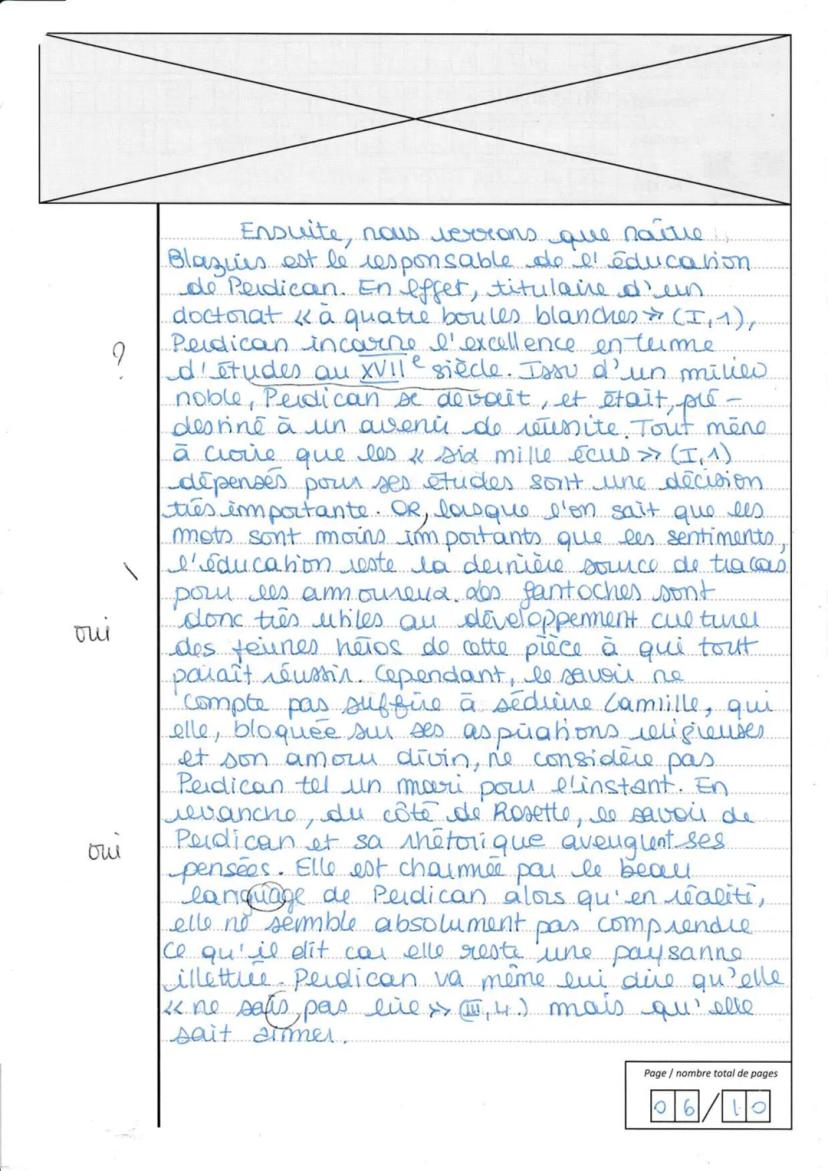 Ensuite, nous verrons que Maître
Blazius est le responsable de l'éducation
de Perdican. En effet, titulaire d'un
doctorat « à quatre boules blanches » (I,1),
? Perdican incarne l'excellence en terme
d'études au XVIIe siècle. Issu d'un milieu
noble, Perdican se devait, et était, pré-
destiné à un avenir de réussite. Tout mène
à croire que les « six mille écus » (I,1)
dépensés pour ses études sont une décision
très importante. OR, lorsque l'on sait que les
mots sont moins importants que les sentiments,
l'éducation reste la dernière source de tracas
pour les amoureux. Les fantoches sont
oui donc très utiles au développement culturel
des jeunes héros de cette pièce à qui tout
paraît réussir. Cependant, le savoir ne
compte pas suffire à séduire Camille, qui
elle, bloquée sur ses aspirations religieuses
et son amour divin, ne considère pas
Perdican tel un mari pour l'instant. En
revanche, du côté de Rosette, le savoir de
oui Perdican et sa rhétorique aveuglent ses
pensées. Elle est charmée par le beau
language de Perdican alors qu'en réalité,
elle ne semble absolument pas comprendre
ce qu'il dit car elle reste une paysanne
illettrée. Perdican va même lui dire qu'elle
« ne sais pas lire » (III,4.) mais qu'elle
sait aimer.
Page / nombre total de pages
06/10